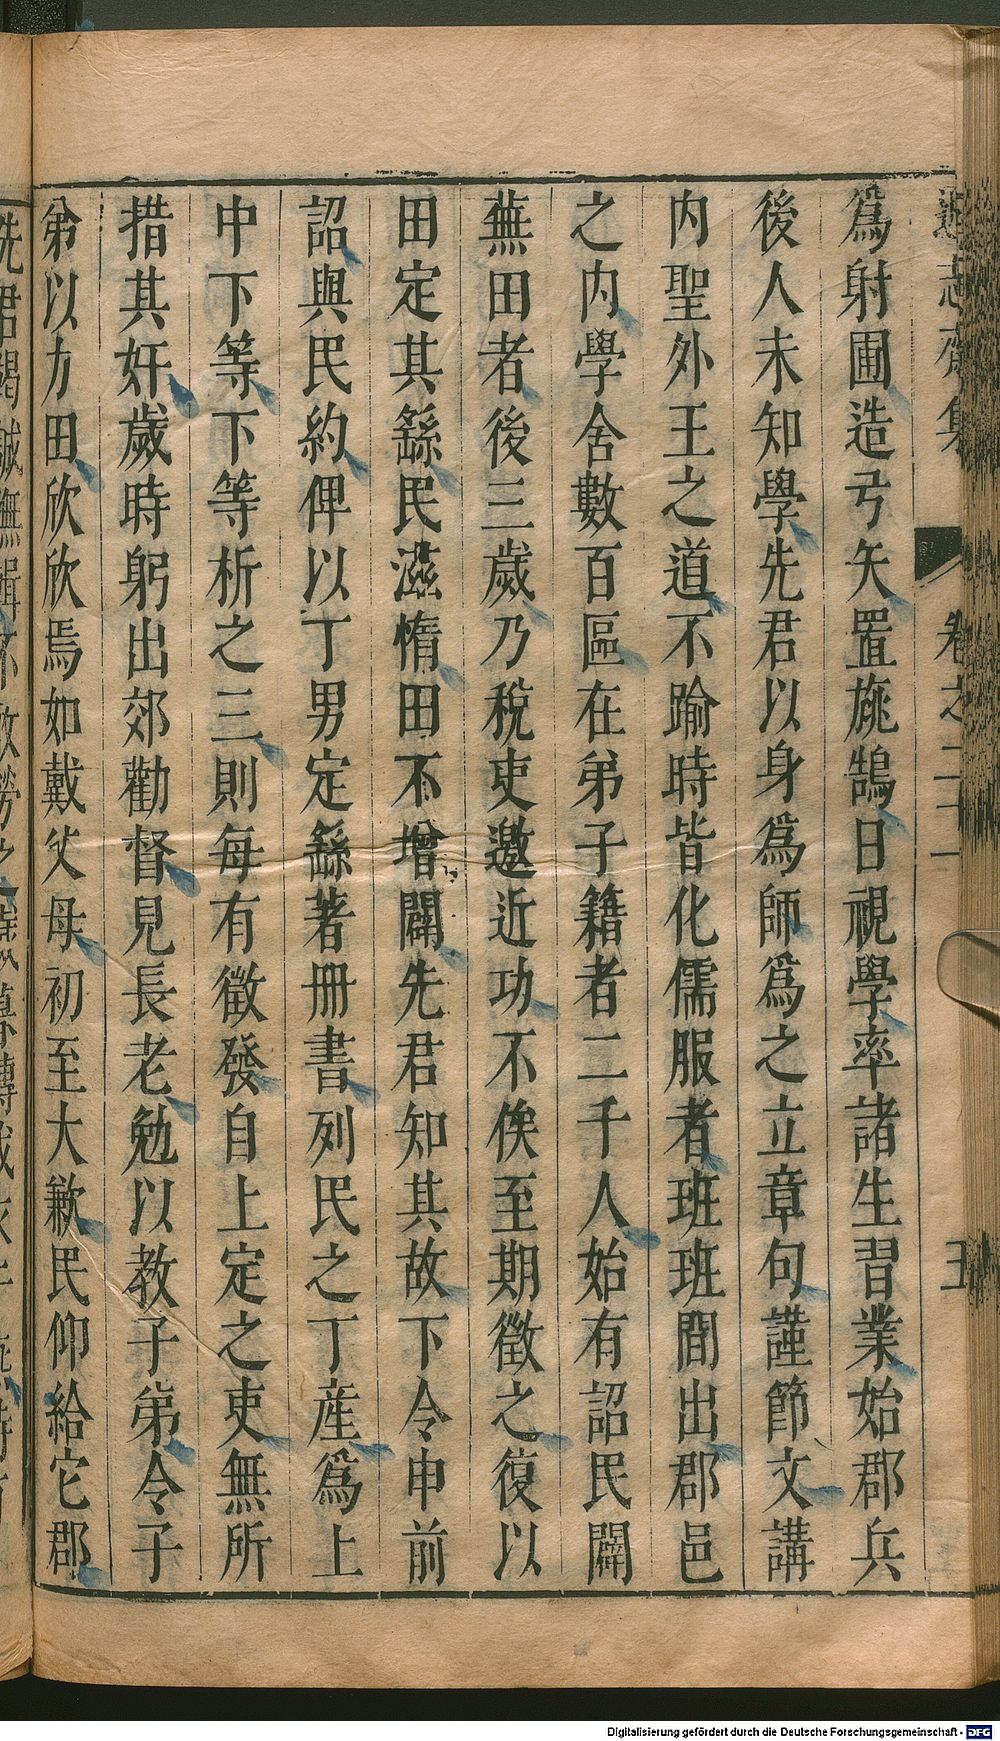 遜志齋集 卷之二十一 五
爲射圃造弓矢置旐鵠日視學率諸生習業始郡兵
後人未知學先君以身爲師爲之立章句謹節文講
内聖外王之道不踰時皆化儒服者班班間出郡邑
之内學舍數百區在弟子籍者二千人始有詔民闢
蕪田者後三歲乃稅吏邀近功不俟至期徵之復以
田定其繇民滋惰田不增闢先君知其故下令申前
詔與民約俾以丁男定繇著册書列民之丁産爲上
中下等下等析之三則每有徵發自上定之吏無所
措其奸歲時躬出郊勸督見長老勉以教子弟令子
弟以力田欣欣焉如戴父母初至大歉民仰給它郡
Digitalisierung gefördert durch die Deutsche Forschungsgemeinschaft - DFG